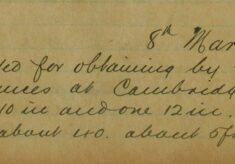 8th Mar
ted for obtaining by
ences at Cambridg
10 in and one 12 in.
about 40. about 5f